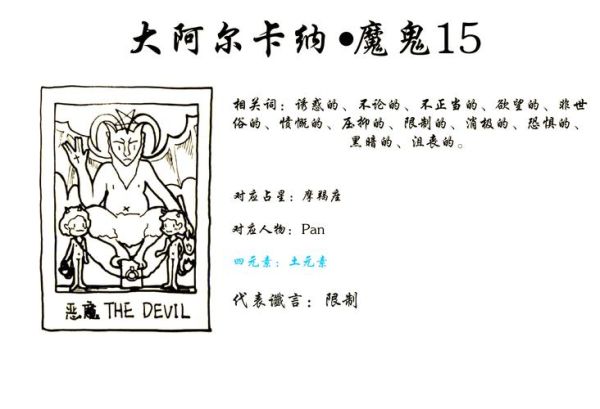 大阿尔卡纳•魔鬼15
相关词：诱惑的、不论的、不正当的、欲望的、非世
俗的、愤慨的、压抑的、限制的、消极的、恐惧的、
黑暗的、沮丧的。
对应占星：摩羯座
对应人物：Pan
四元素：土元素
代表谶言：限制
恶魔 THE DEVIL